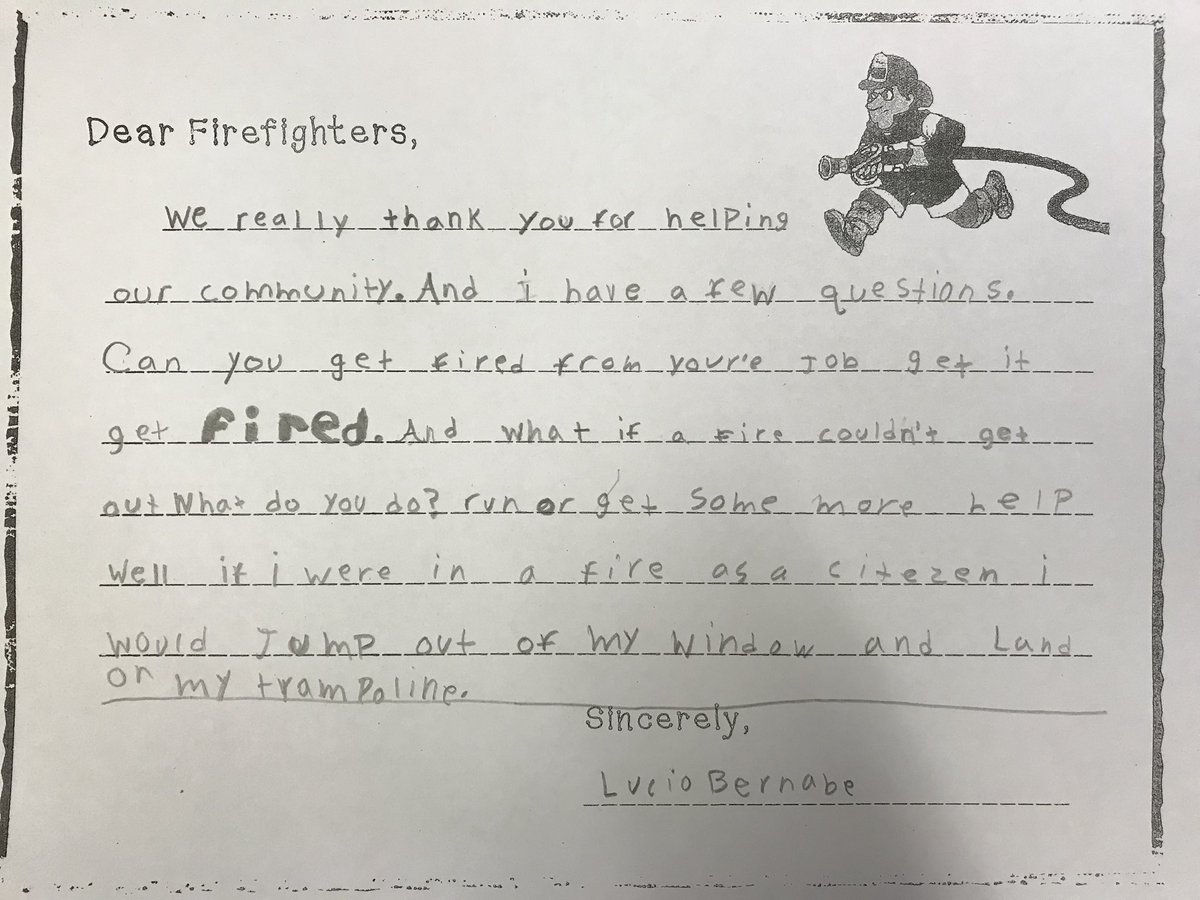 Dear Firefighters,
We really thank you for helping
our community. And i have a few questions.
Can you get fired from your'e Job get it
get fired. And what if a fire couldn't get
out What do you do? run or get some more help
Well if i were in a fire as a citezen i
would Jump out of my window and Land
on my trampoline.
Sincerely,
Lucio Bernabe